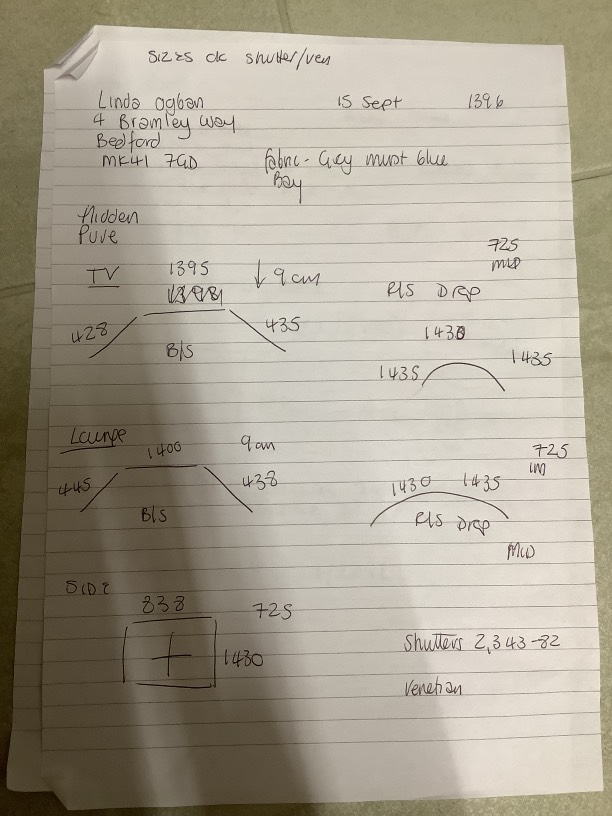 sizes ok shutter/ven
Linda Ogban 15 Sept 1396
4 Bramley Way
Bedford
MK41 7GD fabric - Grey must blue
Bay
Hidden
Pure
725
MID
TV 1395 ↓ 9am
R/S Drop
428 435
B/S
1430
1435 1435
Lounge 1400 9am
445 438
B/S
725
1430 1435
R/S Drop
MID
SIDE
838 725
1430
Shutters 2,343-82
Venetian